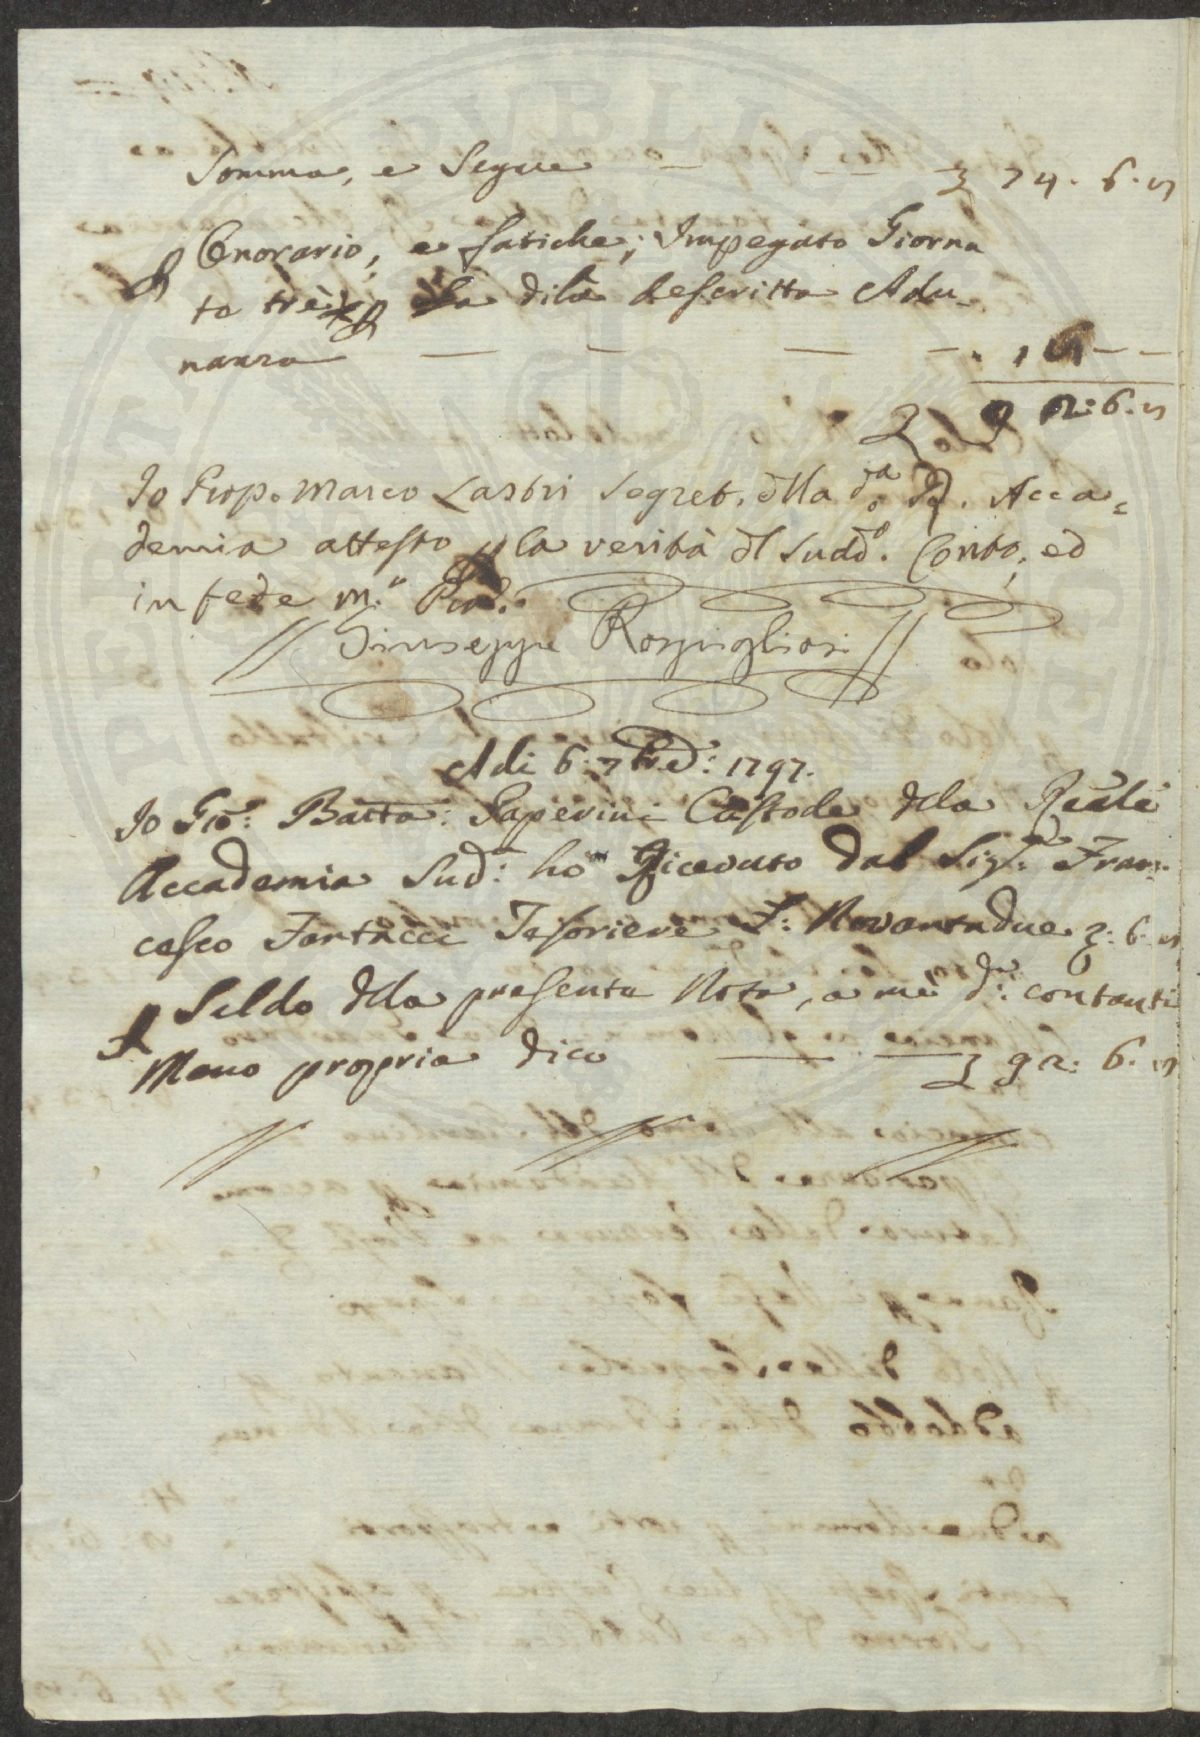 Somma, e Segue — — 74. 6. 8
p Onorario, e fatiche; Impegato Giorna
te trè p la dilà descritta Adu-
nanza — — — — . 18 — —
92: 6. 8
Io Prop. Marco Lastri Segret. dlla da. Acca=
demia attesto la verità dl sudd°. Conto, ed
in fede m.
Giuseppe Rospigliosi
Adi 6. 7bre: 1797.
Io Gio: Batta: Paperini Custode dlla Reale
Accademia Sud: ho Ricevuto dal Sig: Fran:
cesco Fantacci Tesoriere Novantadue 6. 8
p Saldo dlla presente Nota, a me di: contanti
Mano propria dico — — 92: 6. 8